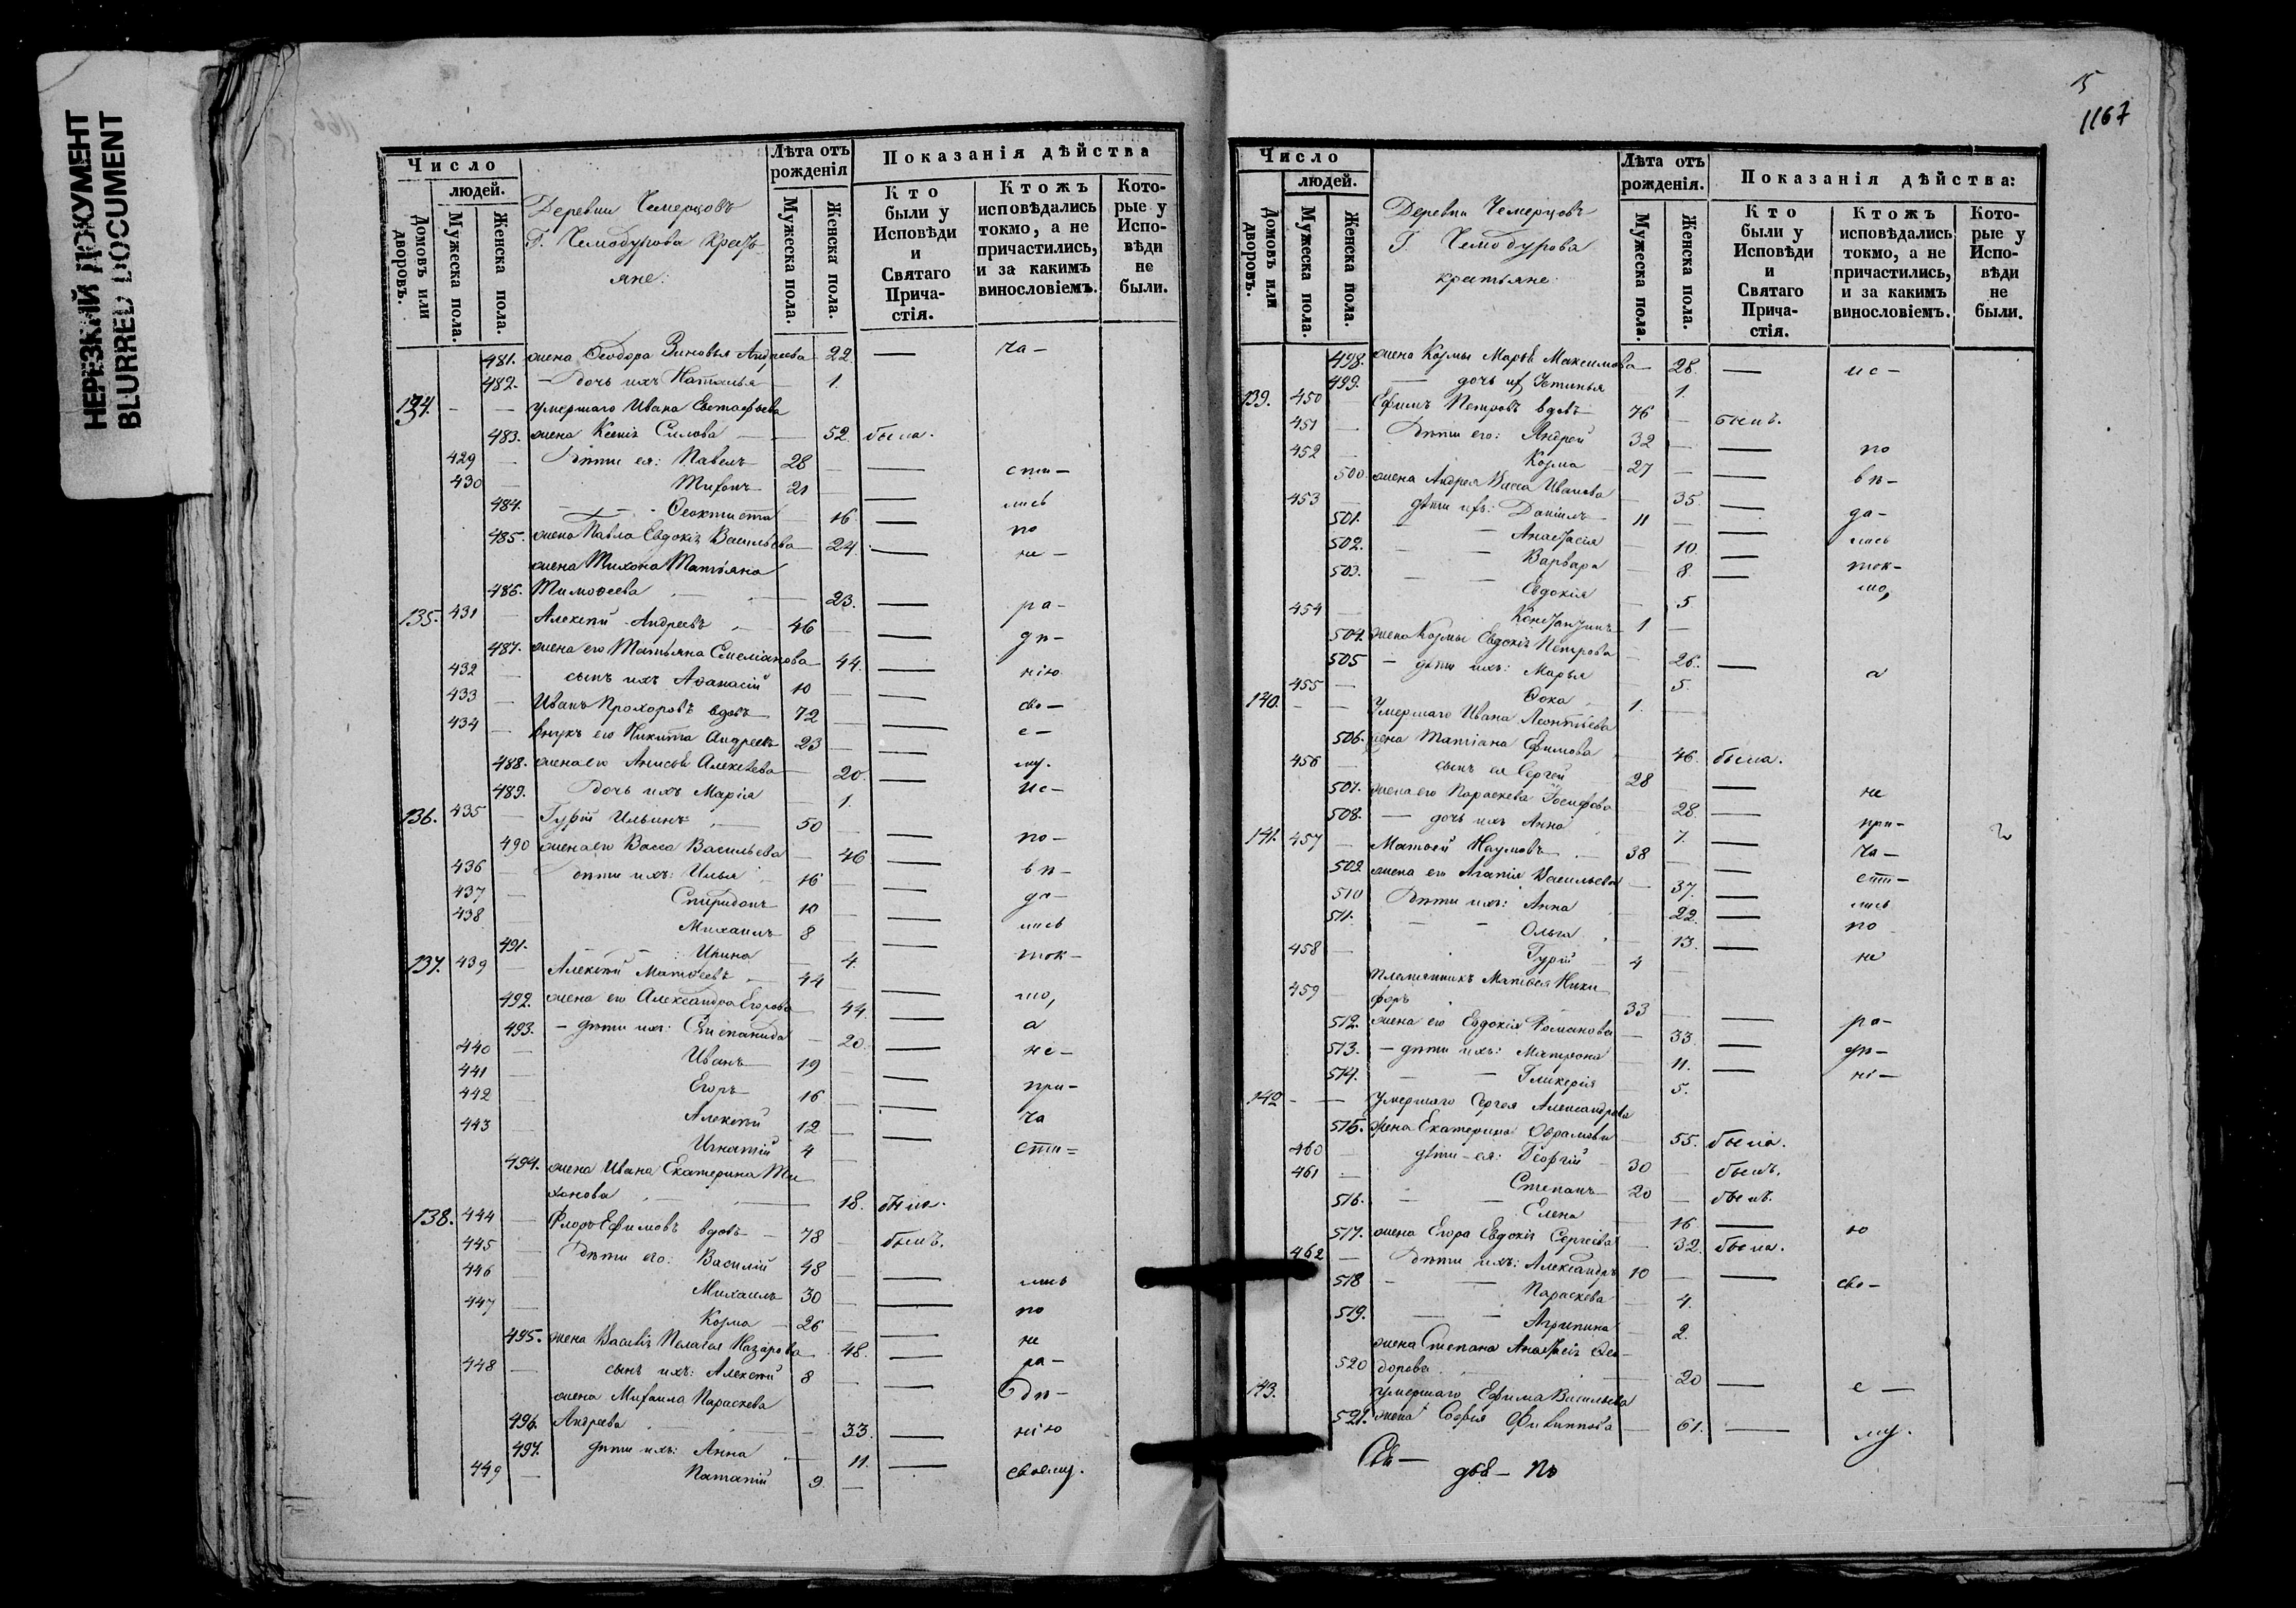 НЕРЕЗКИЙ ДОКУМЕНТ
BLURRED DOCUMENT
Число
людей.
Домовъ или дворовъ.
Мужеска пола.
Женска пола.
Деревни Чемерцовъ
Г. Чемодурова кресть-
яне:
Лѣта отъ рожденія
Мужеска пола.
Женска пола.
Показанія дѣйства
Кто были у Исповѣди и Святаго Прича-стія.
Ктожъ исповѣдались токмо, а не причастились, и за какимъ винословіемъ.
Кото-рые у Испо-вѣди не были.
481. жена Ѳеодора Зиновья Андреева 22. — ча-
482. — дочь ихъ Наталья — 1.
134. — — умершаго Ивана Евстафьева
483. жена Ксенія Силова — — 52. была.
429 — дѣти ея: Павелъ 28 — — сти-
430 — Тихонъ 21 — — лись
484. — — Ѳеоктиста — 16 — по
485. жена Павла Евдокія Васильева 24 — не-
жена Тихона Татьяна
486. Тимоѳеева — — 23. — ра-
135. 431 — Алексѣй Андреевъ — 46 — — дѣ-
487. жена его Татьяна Емеліанова 44. — нію
432 — сынъ ихъ Аѳанасій 10 — — сво-
433 — Иванъ Прохоровъ вдовъ 72 — — е-
434 — внукъ его Никита Андреевъ 23 — — му.
488. жена его Анисья Алексѣева — 20. — Ис-
489. дочь ихъ Марія — 1.
136. 435 — Гурій Ильинъ — 50 — — по-
490 жена его Васса Васильева — 46 — вѣ-
436 — дѣти ихъ: Илья — 16 — — да-
437 — Спиридонъ 10 — — лись
438 — Михаилъ 8 — — ток-
491. — Ирина — 4.
137. 439 — Алексѣй Матѳеевъ — 44 — — мо,
492. жена его Александра Егорова 44. — а
493. — дѣти ихъ: Степанида — 20. — не-
440 — Иванъ 19 — — при-
441 — Егоръ 16 — — ча
442 — Алексѣй 12 — — сти=
443 — Игнатій 4 —
494. жена Ивана Екатерина Ти-
хонова — — 18. была.
138. 444 — Флоръ Ефимовъ вдовъ — 78 — былъ.
445 — дѣти его: Василій 48 — — лись
446 — Михаилъ 30 — — по
447 — Козма — 26 — — не
495. жена Василія Пелагея Назарова — 48. — ра-
448 — сынъ ихъ: Алексѣй 8 — — дѣ-
жена Михаила Параскева
496. Андреева — — 33. — нію
497. дѣти ихъ: Анна — 11. — своему.
449 — Ипатій 9. —
15
1167
Число
людей.
Домовъ или дворовъ.
Мужеска пола.
Женска пола.
Деревни Чемерцовъ
Г. Чемодурова
крестьяне:
Лѣта отъ рожденія.
Мужеска пола.
Женска пола.
Показанія дѣйства:
Кто были у Исповѣди и Святаго Прича-стія.
Ктожъ исповѣдались токмо, а не причастились, и за какимъ винословіемъ.
Кото-рые у Испо-вѣди не были.
498. жена Козмы Марья Максимова — 28. — ис-
499. — дочь их Устинья 1.
139. 450 — Ефимъ Петровъ вдовъ — 76 — былъ.
451 — дѣти его: Андрей 32 — — по
452 — Козма 27 — — вѣ-
500 жена Андрея Васса Иванова — 35. — да-
453 — дѣти ихъ: Даніилъ — 11 — — лись
501. — — Анастасія — 10. — ток-
502. — — Варвара — 8. — мо,
503. — — Евдокія — 5
454 — Константинъ 1 —
504. жена Козмы Евдокія Петрова — 26. — а
505 — дѣти ихъ: Марья — 5.
455 — Ѳока 1. —
140. — — Умершаго Ивана Леонтьева
506. жена Татіана Ефимова 46. была.
456 — сынъ ея Сергей 28 — — не
507. жена его Параскева Іосифова 28. — при-
508. — дочь ихъ Анна 7. — ча-
141. 457 — Матѳей Наумовъ — 38 — — сти-
509. жена его Агапія Васильева — 37. — лись
510 дѣти ихъ: Анна 22. — по
511. — — Ольга — 13. — не
458 — Гурій 4
племянникъ Матѳея Ники-
459 — форъ 33 — — ра-
512. жена его Евдокія Романова — 33. — дѣ-
513. — дѣти ихъ: Матрона 11. — ні-
514. — — Гликерія 5.
142 — — Умершаго Сергея Александрова
515. жена Екатерина Аврамова 55. была.
460 — дѣти ея: Георгій 30 — былъ.
461 — Степанъ 20 — былъ.
516. — — Елена — 16. — ю
517. жена Егора Евдокія Сергеева 32. была.
462 — дѣти ихъ: Александръ 10 — — сво-
518 — — Параскева — 4.
519. — — Агрипина — 2.
жена Степана Анастасія Ѳео-
520 дорова — 20 — е-
143. умершаго Ефима Васильева
521. жена Софія Филиппова — 61. — му.